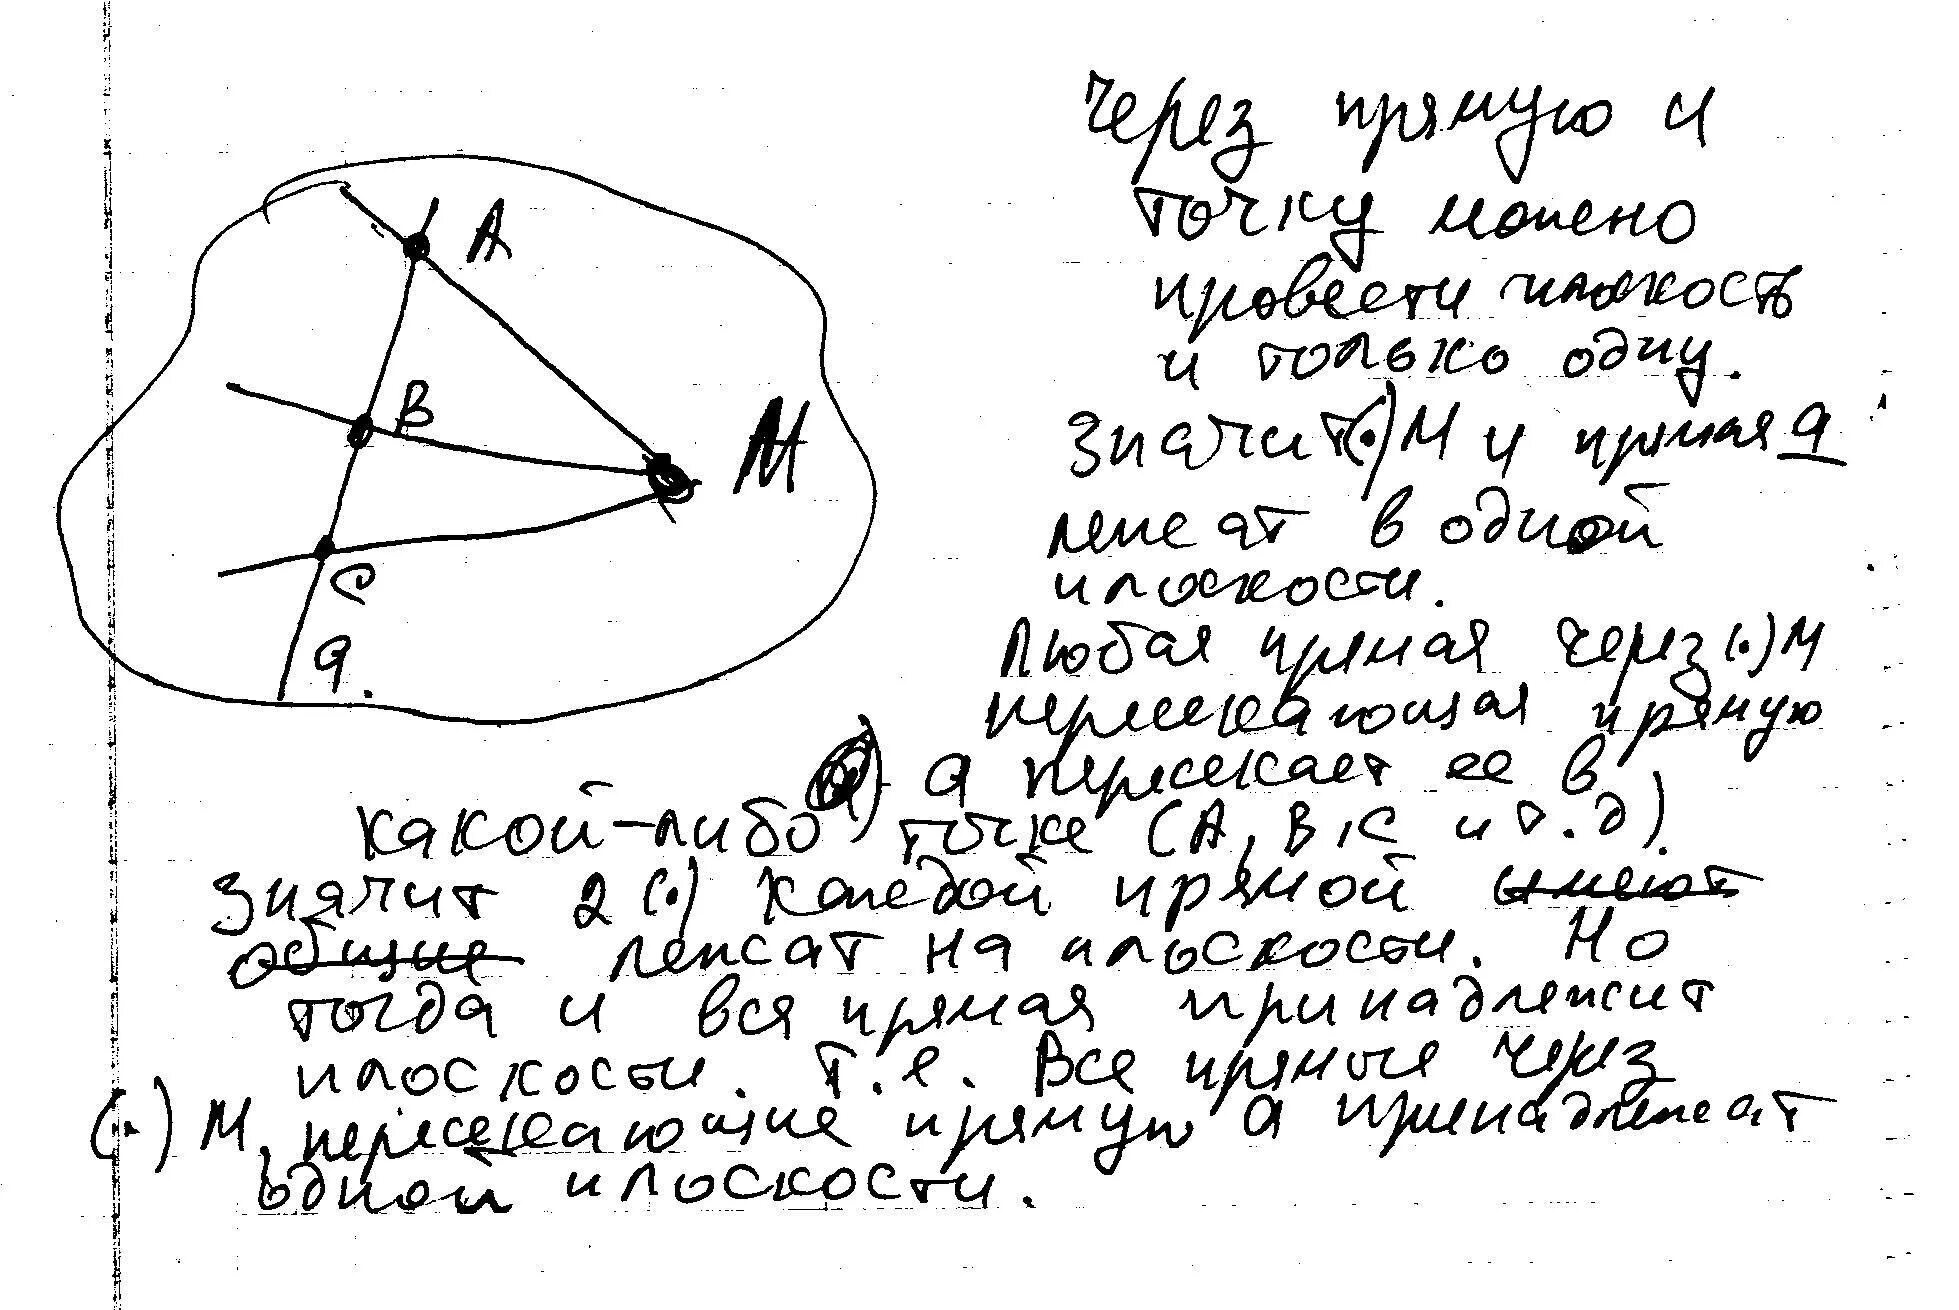 A
B
M
C
a.
Через прямую и
точку можно
провести плоскость
и только одну.
Значит (.) M и прямая a
лежат в одной
плоскости.
Любая прямая через (.) M
пересекающая прямую
a пересекает ее в
какой-либо точке (A, B, C и т.д).
Значит 2 (.) каждой прямой имеют
общие лежат на плоскости. Но
тогда и вся прямая принадлежит
плоскости. Т.е. Все прямые через
(.) M, пересекающие прямую a принадлежат
одной плоскости.